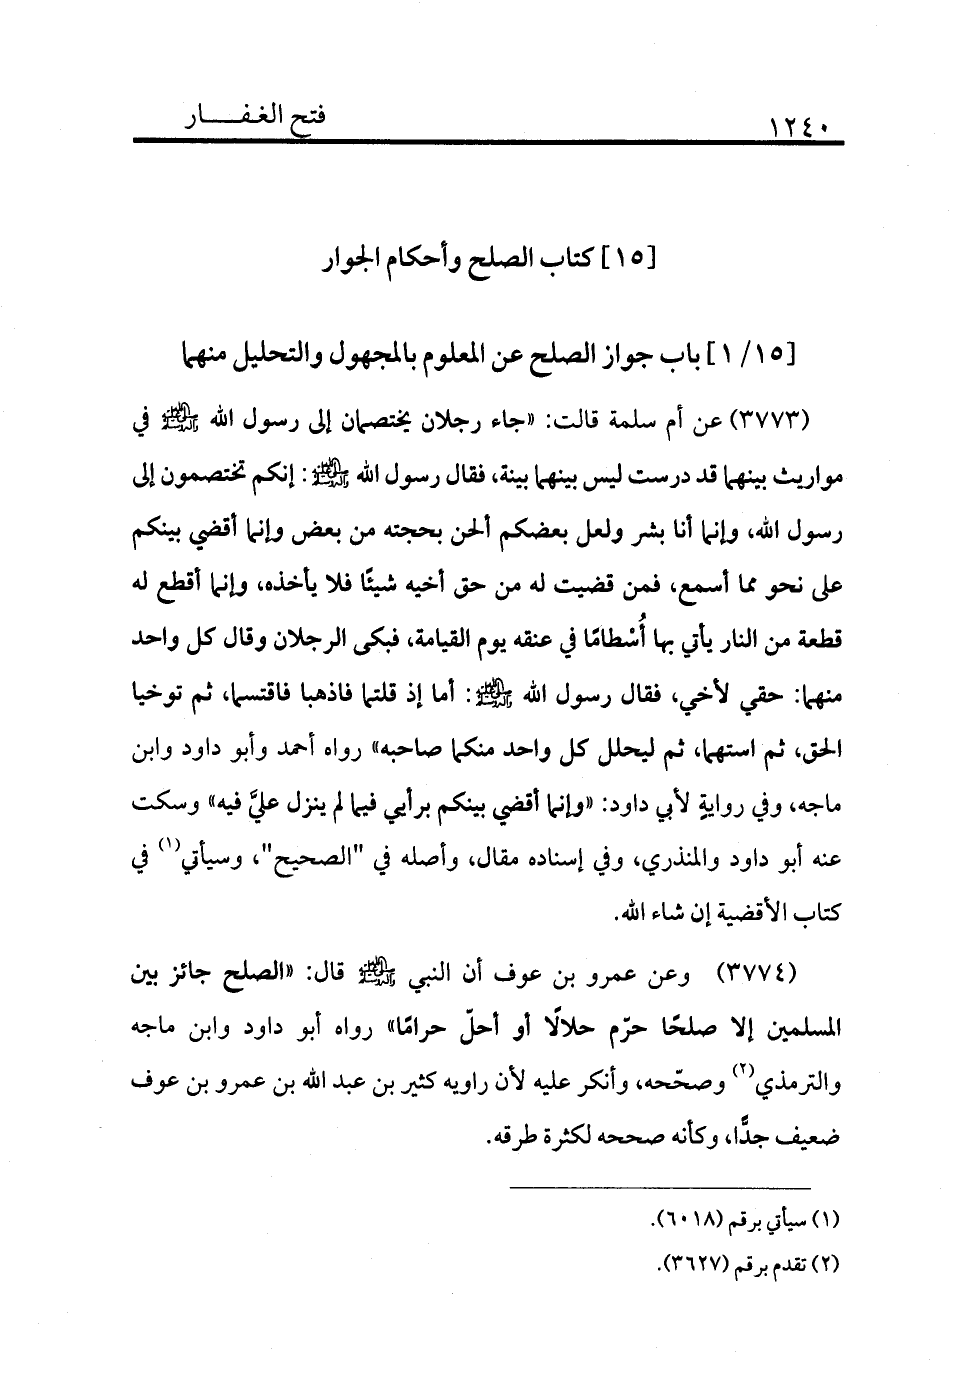 ١٢٤٠ فتح الغفـــــار
[١٥] كتاب الصلح وأحكام الجوار
[١/١٥] باب جواز الصلح عن المعلوم بالمجهول والتحليل منهما
(٣٧٧٣) عن أم سلمة قالت: «جاء رجلان يختصمان إلى رسول الله ﷺ في
مواريث بينهما قد درست ليس بينهما بينة، فقال رسول الله ﷺ: إنكم تختصمون إلى
رسول الله، وإنما أنا بشر ولعل بعضكم ألحن بحجته من بعض وإنما أقضي بينكم
على نحو مما أسمع، فمن قضيت له من حق أخيه شيئًا فلا يأخذه، وإنما أقطع له
قطعة من النار يأتي بها أُسْطامًا في عنقه يوم القيامة، فبكى الرجلان وقال كل واحد
منهما: حقي لأخي، فقال رسول الله ﷺ: أما إذ قلتما فاذهبا فاقتسما، ثم توخيا
الحق، ثم استهما، ثم ليحلل كل واحد منكما صاحبه» رواه أحمد وأبو داود وابن
ماجه، وفي روايةٍ لأبي داود: «وإنما أقضي بينكم برأيي فيما لم ينزل عليَّ فيه» وسكت
عنه أبو داود والمنذري، وفي إسناده مقال، وأصله في "الصحيح"، وسيأتي(١) في
كتاب الأقضية إن شاء الله.
(٣٧٧٤) وعن عمرو بن عوف أن النبي ﷺ قال: «الصلح جائز بين
المسلمين إلا صلحًا حرّم حلالًا أو أحلّ حرامًا» رواه أبو داود وابن ماجه
والترمذي(٢) وصحّحه، وأنكر عليه لأن راويه كثير بن عبد الله بن عمرو بن عوف
ضعيف جدًّا، وكأنه صححه لكثرة طرقه.
(١) سيأتي برقم (٦٠١٨).
(٢) تقدم برقم (٣٦٢٧).